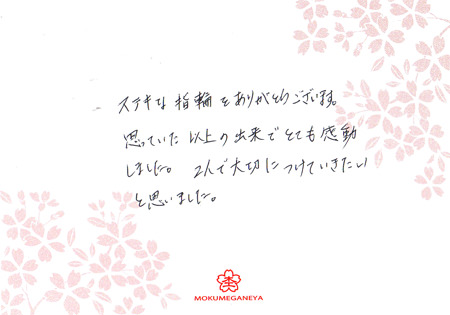 ステキな指輪をありがとうございます。
思っていた以上の出来でとても感動
しました。 2人で大切につけていきたい
と思いました。
MOKUMEGANEYA